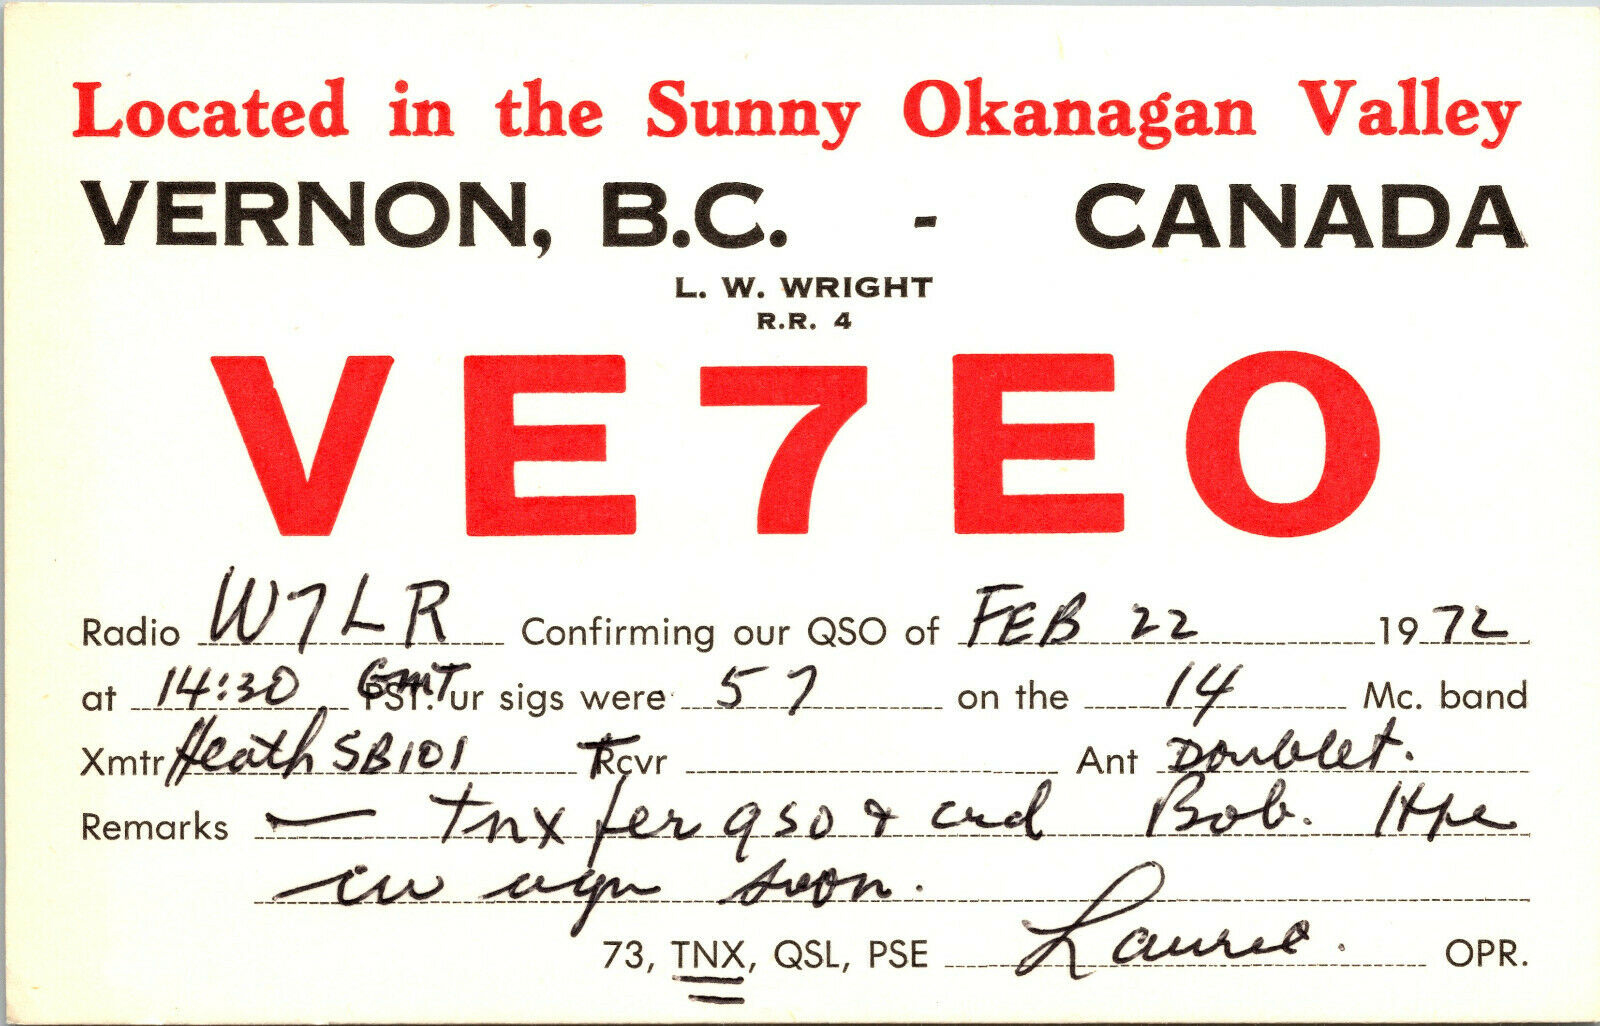 Located in the Sunny Okanagan Valley
VERNON, B.C. - CANADA
L. W. WRIGHT
R.R. 4
VE7EO
Radio W7LR Confirming our QSO of FEB 22 1972
at 14:30 GMT PST. Ur sigs were 57 on the 14 Mc. band
Xmtr Heath SB101 Rcvr Ant Doublet.
Remarks — tnx fer qso & crd Bob. Hpe
cu agn soon.
73, TNX, QSL, PSE Laurie. OPR.